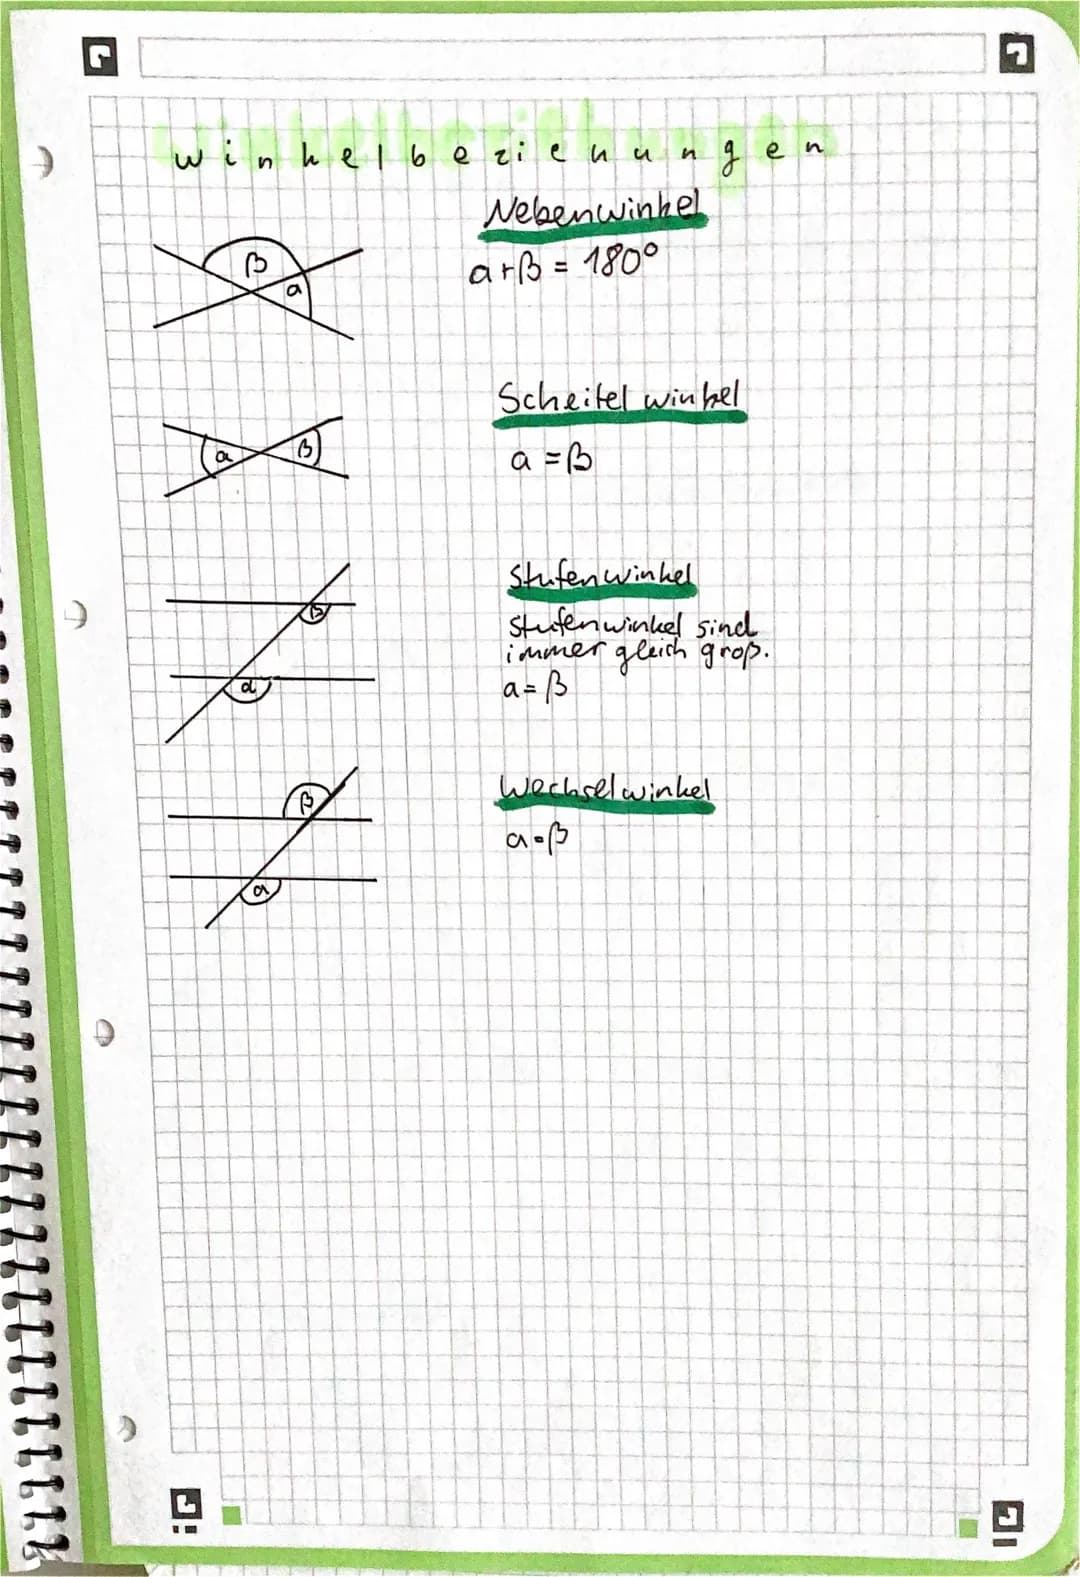 Winkelbeziehungen
Nebenwinkel
α+β = 180°
β
α
Scheitelwinkel
α = β
α
β
Stufenwinkel
Stufenwinkel sind
immer gleich groß.
α = β
β
α
Wechselwinkel
α = β
β
α